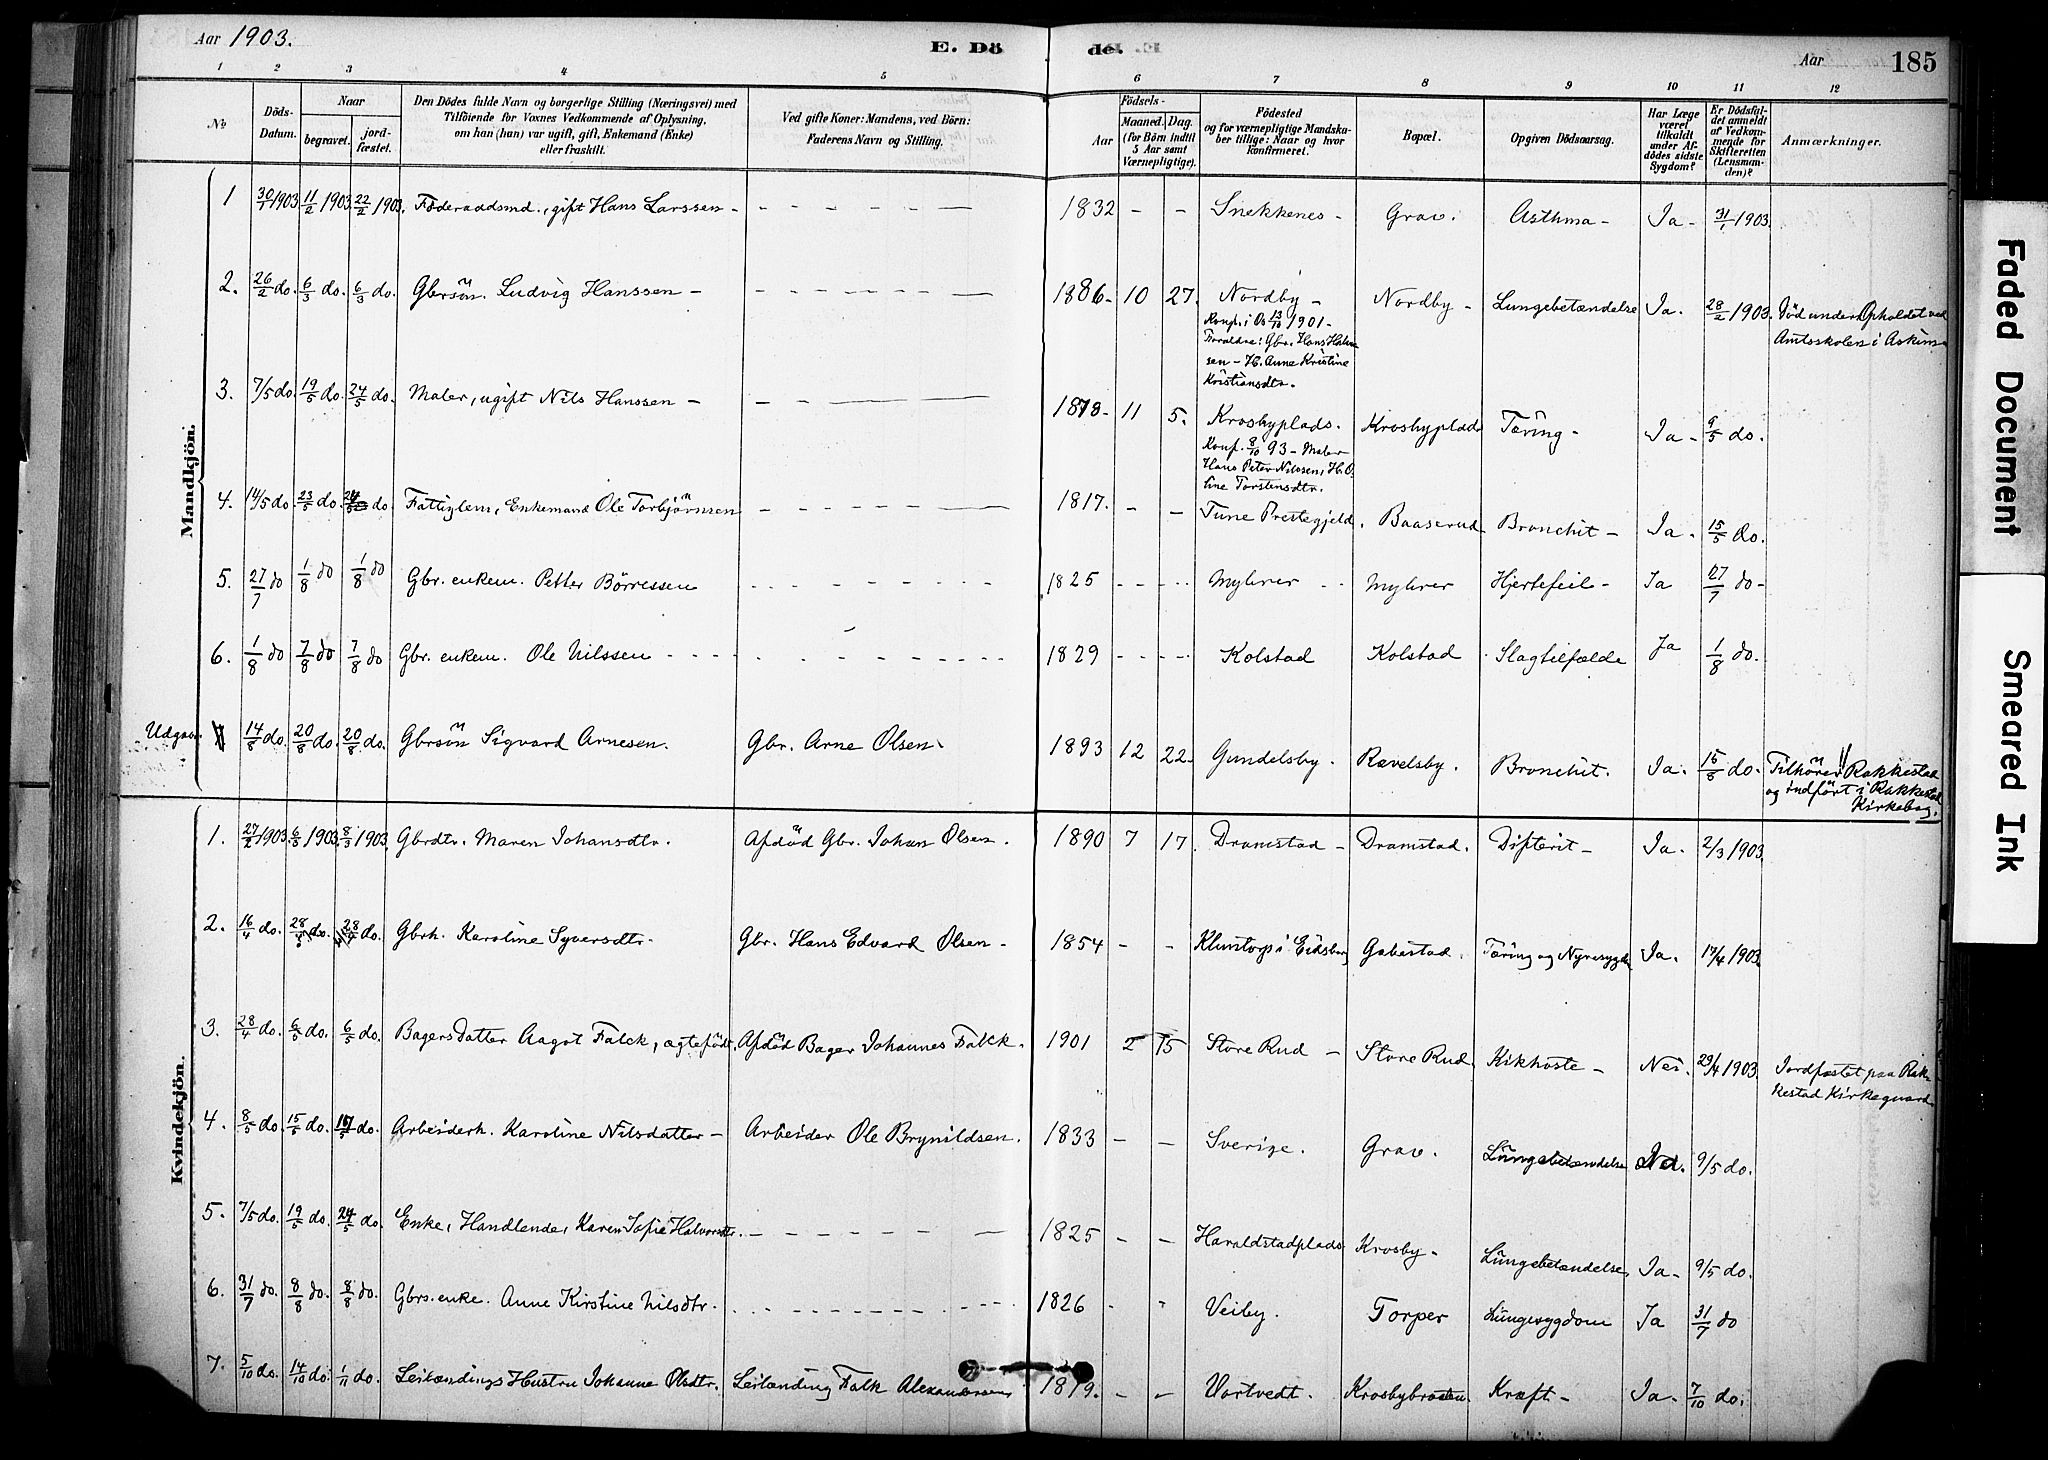 Aar 1903.
E. Dö
de.
Aar
185
1 2 3 4 5 6 7 8 9 10 11 12
No
Döds-Datum.
Naar
begravet.
jord-fæstet.
Den Dödes fulde Navn og borgerlige Stilling (Næringsvei) med
Tilföiende for Voxnes Vedkommende af Oplysning,
om han (hun) var ugift, gift, Enkemand (Enke)
eller fraskilt.
Ved gifte Koner: Mandens, ved Börn:
Faderens Navn og Stilling.
Födsels-
Aar
Maaned. Dag.
(for Börn indtil
5 Aar samt
Værnepligtige).
Födested
og for værnepligtige Mandska-
ber tillige: Naar og hvor
konfirmeret.
Bopæl.
Opgiven Dödsaarsag.
Har Læge
været
tilkaldt
under Af-
dödes sidste
Sygdom?
Er Dödsfal-
det anmeldt
af Vedkom-
mende for
Skifteretten
(Lensman-
den)?
Anmærkninger.
Mandkjön.
1 30/1 1903 11/2 1903 22/2 1903. Föderaadsmd., gift Hans Larssen - 1832 - - Snekkenes - Grav. Asthma - Ja - 31/1 1903.
2. 26/2 do. 6/3 do. 6/3 do. Gbrsön. Ludvig Hanssen - 1886. 10 27. Nordby - Nordby - Lungebetændelse Ja. 28/2 1903. Död under Opholdet ved
Konf. i Os 13/10 1901 - Amtsskolen i Askim
Foraldre: Gbr. Hans Halvor
sen - H. Anne Kristine
Kristiansdtr.
3. 7/5 do. 19/5 do. 24/5 do. Maler, ugift Nils Hanssen - 1878. 11 5. Krosbyplads. Krosbyplads Tæring - Ja - 9/5 do.
Konf. 8/10 93 - Maler
Hans Peter Nilssen, H. O
line Torstensdtr.
4. 14/5 do. 23/5 do. 24/5 do. Fattiglem, Enkemand Ole Torbjörnsen 1817. - - Tune Prestegjeld. Baaserud Bronchit - Ja. 15/5 do.
5. 27/7 do 1/8 do 1/8 do Gbr. enkem. Petter Börressen 1825 Myhrer Myhrer Hjertefeil - Ja 27/7 do -
6. 1/8 do 7/8 do 7/8 do Gbr. enkem. Ole Nilssen 1829 Kolstad Kolstad Slagtilfælde Ja 1/8 do.
Udgaar. 14/8 do. 20/8 do. 20/8 do. Gbrsön Sigvard Arnesen. Gbr. Arne Olsen. 1893 12 22. Gundelsby. Ravelsby. Bronchit. Ja. 15/8 do. Tilhörer Rakkestad
og indfört i Rakkestad
Kirkebog.
Kvindekjön.
1. 27/2 1903. 6/3 1903. 8/3 1903. Gbrdtr. Maren Johansdtr. Afdöd Gbr. Johan Olsen. 1890 7 17. Dramstad - Dramstad. Difterit - Ja. 2/3 1903.
2. 16/4 do. 28/4 do. 28/4 do. Gbrh. Karoline Syversdtr. Gbr. Hans Edvard Olsen - 1854 - - Gabestad. Tæring og Nyresygd. Ja. 17/4 1903.
3. 28/4 do. 6/5 do. 6/5 do. Bagers Datter Aagot Falck, ægtefödt. Afdöd Bager Johannes Falck. 1901 2 15 Store Rud - Store Rud. Kikhoste - Nei. 29/4 1903. Jordfæstet paa Rak-
kestad Kirkegaard
4. 8/5 do. 15/5 do. 17/5 do. Arbeiderh. Karoline Nilsdatter - Arbeider Ole Brynildsen. 1833 - - Sverige. Grav. Lungebetændelse Nei. 9/5 do.
5. 7/5 do. 19/5 do. 24/5 do. Enke, Handlende, Karen Sofie Halvorsdtr. 1825 - - Haraldstadplads Krosby - Lungebetændelse. Ja - 9/5 do.
6. 31/7 do. 8/8 do. 8/8 do. Gbrs. enke. Anne Kirstine Nilsdtr. 1826 Veiby. Torper Lungesygdom Ja 31/7 do
7. 5/10 do. 14/10 do. 1/11 do. Leilændings Hustru Johanne Olsdtr. Leilænding Falk Alexandersen 1819. - - Vortvedt. Krosbybraaten. Kræft - Ja. 7/10 do.
Faded Document
Smeared Ink